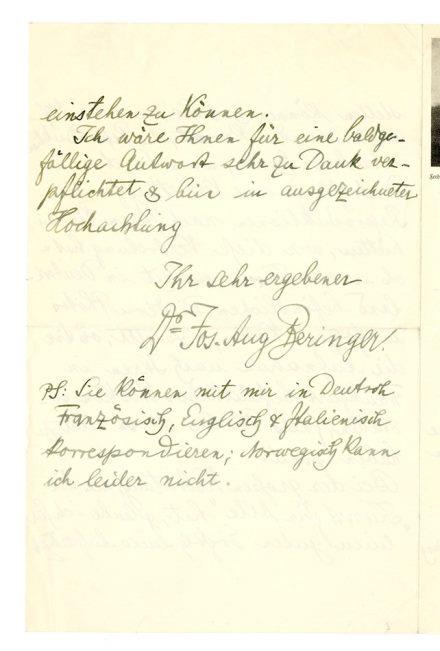 einstehen zu können.
Ich wäre Ihnen für eine baldge-
fällige Antwort sehr zu Dank ver-
pflichtet & bin in ausgezeichneter
Hochachtung
Ihr sehr ergebener
Dr Jos. Aug Beringer
PS: Sie können mit mir in Deutsch
Französisch, Englisch & Italienisch
korrespondieren; Norwegisch kann
ich leider nicht.